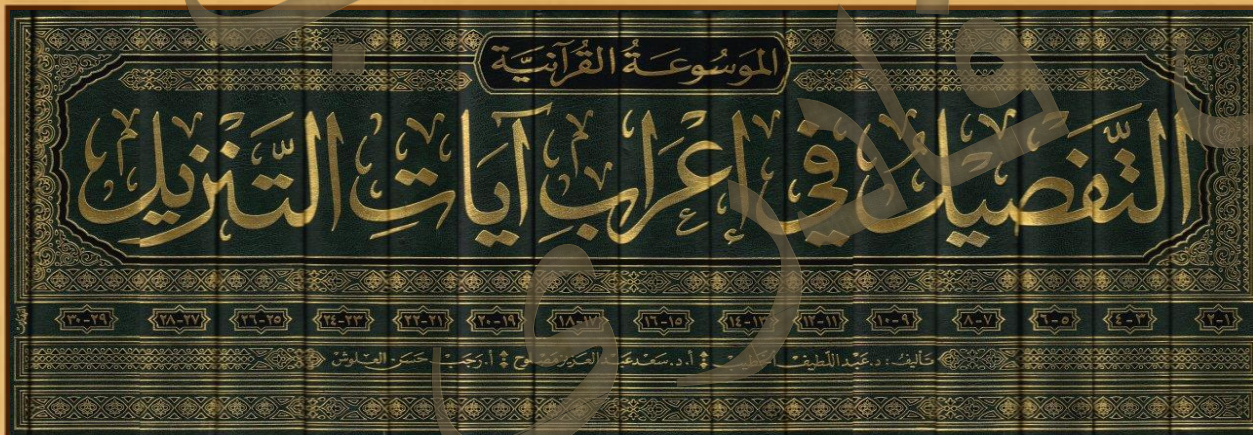 الموسوعة القرآنية
التفصيل في إعراب آيات التنزيل
١-٢ ٣-٤ ٥-٦ ٧-٨ ٩-١٠ ١١-١٢ ١٣-١٤ ١٥-١٦ ١٧-١٨ ١٩-٢٠ ٢١-٢٢ ٢٣-٢٤ ٢٥-٢٦ ٢٧-٢٨ ٢٩-٣٠
تأليف : د. عبد اللطيف الخطيب أ.د. سعد عبد العزيز مصلوح أ. رجب حسن العلوش